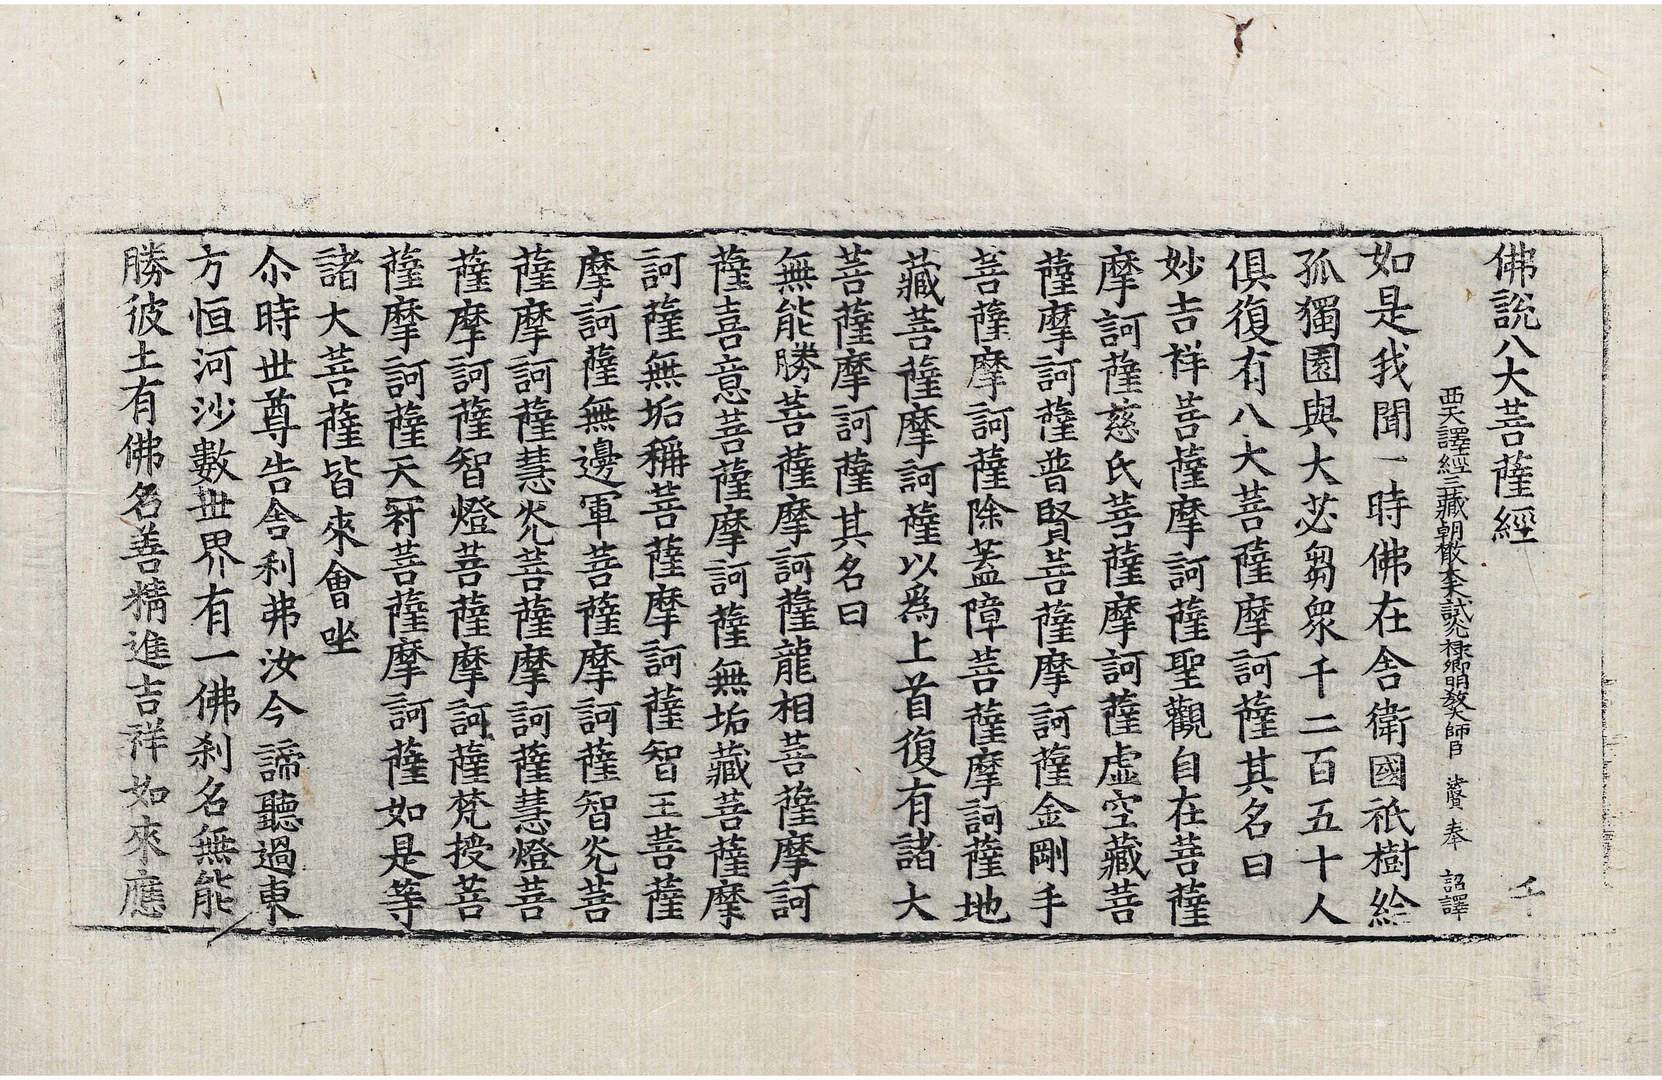 佛說八大菩薩經
千
西天譯經三藏朝散大夫試光祿卿明教大師臣 法賢 奉 詔譯
如是我聞一時佛在舍衛國祇樹給
孤獨園與大苾芻衆千二百五十人
俱復有八大菩薩摩訶薩其名曰
妙吉祥菩薩摩訶薩聖觀自在菩薩
摩訶薩慈氏菩薩摩訶薩虛空藏菩
薩摩訶薩普賢菩薩摩訶薩金剛手
菩薩摩訶薩除蓋障菩薩摩訶薩地
藏菩薩摩訶薩以爲上首復有諸大
菩薩摩訶薩其名曰
無能勝菩薩摩訶薩龍相菩薩摩訶
薩喜意菩薩摩訶薩無垢藏菩薩摩
訶薩無垢稱菩薩摩訶薩智王菩薩
摩訶薩無邊軍菩薩摩訶薩智光菩
薩摩訶薩慧光菩薩摩訶薩慧燈菩
薩摩訶薩智燈菩薩摩訶薩梵授菩
薩摩訶薩天冠菩薩摩訶薩如是等
諸大菩薩皆來會坐
尒時世尊告舍利弗汝今諦聽過東
方恒河沙數世界有一佛刹名無能
勝彼土有佛名善精進吉祥如來應